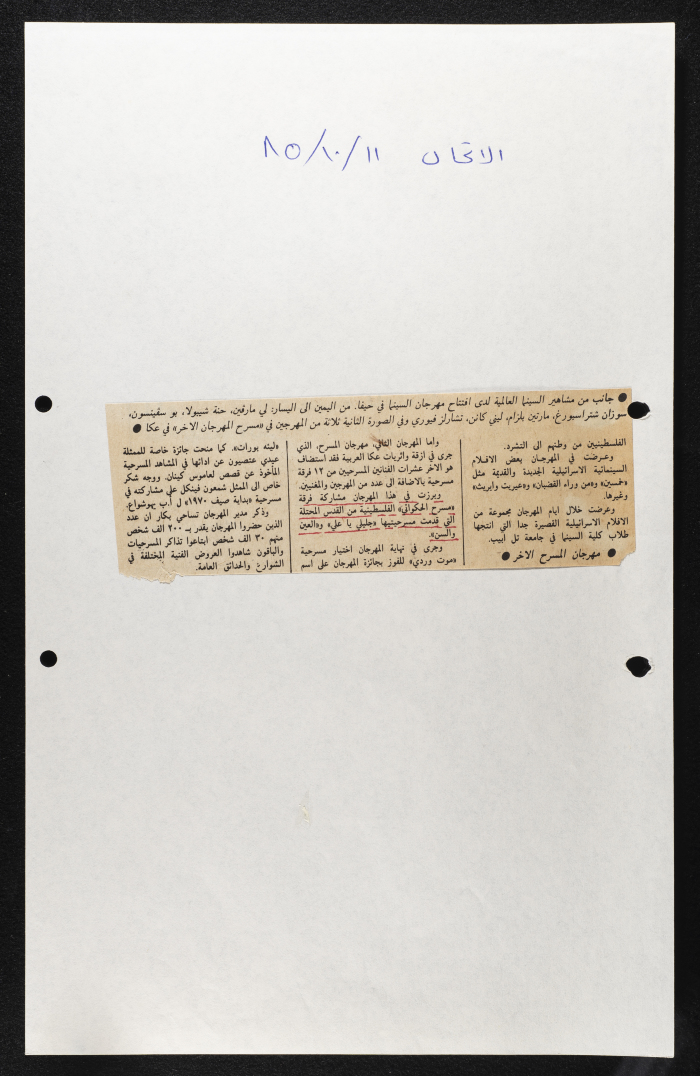 الاتحاد ١١/١٠/٨٥
● جانب من مشاهير السينما العالمية لدى افتتاح مهرجان السينما في حيفا. من اليمين الى اليسار: لي مارفين، حنة شيبولا، بو سفينسون،
سوزان شتراسبورغ، مارتين بلزام، ليني كانن، تشارلز فيوري وفي الصورة الثانية ثلاثة من المهرجين في «مسرح المهرجان الاخر» في عكا ●
الفلسطينيين من وطنهم الى التشرد.
وعرضت في المهرجان بعض الافلام
السينمائية الاسرائيلية الجديدة والقديمة مثل
«خمسين» و«من وراء القضبان» و«عيريت وايريث»
وغيرها.
وعرضت خلال ايام المهرجان مجموعة من
الافلام الاسرائيلية القصيرة جدا التي انتجها
طلاب كلية السينما في جامعة تل ابيب.
● مهرجان المسرح الاخر ●
واما المهرجان الثاني، مهرجان المسرح، الذي
جرى في ازقة واثريات عكا العربية فقد استضاف
هو الاخر عشرات الفنانين المسرحيين من ١٢ فرقة
مسرحية بالاضافة الى عدد من المهرجين والمغنيين.
وبرزت في هذا المهرجان مشاركة فرقة
«مسرح الحكواتي» الفلسطينية من القدس المحتلة
التي قدمت مسرحيتيها «جليلي يا علي» و«العين
والسن».
وجرى في نهاية المهرجان اختيار مسرحية
«موت وردي» للفوز بجائزة المهرجان على اسم
«ليئه بورات». كما منحت جائزة خاصة للممثلة
عيدي عتصيون عن ادائها في المشاهد المسرحية
المأخوذ عن قصص لعاموس كينان. ووجه شكر
خاص الى الممثل شمعون فينكل على مشاركته في
مسرحية «بداية صيف ١٩٧٠» ل أ.ب يهوشواع.
وذكر مدير المهرجان تساحي بكار ان عدد
الذين حضروا المهرجان يقدر بـ ٢٠٠ الف شخص
منهم ٣٠ الف شخص ابتاعوا تذاكر المسرحيات
والباقون شاهدوا العروض الفنية المختلفة في
الشوارع والحدائق العامة.